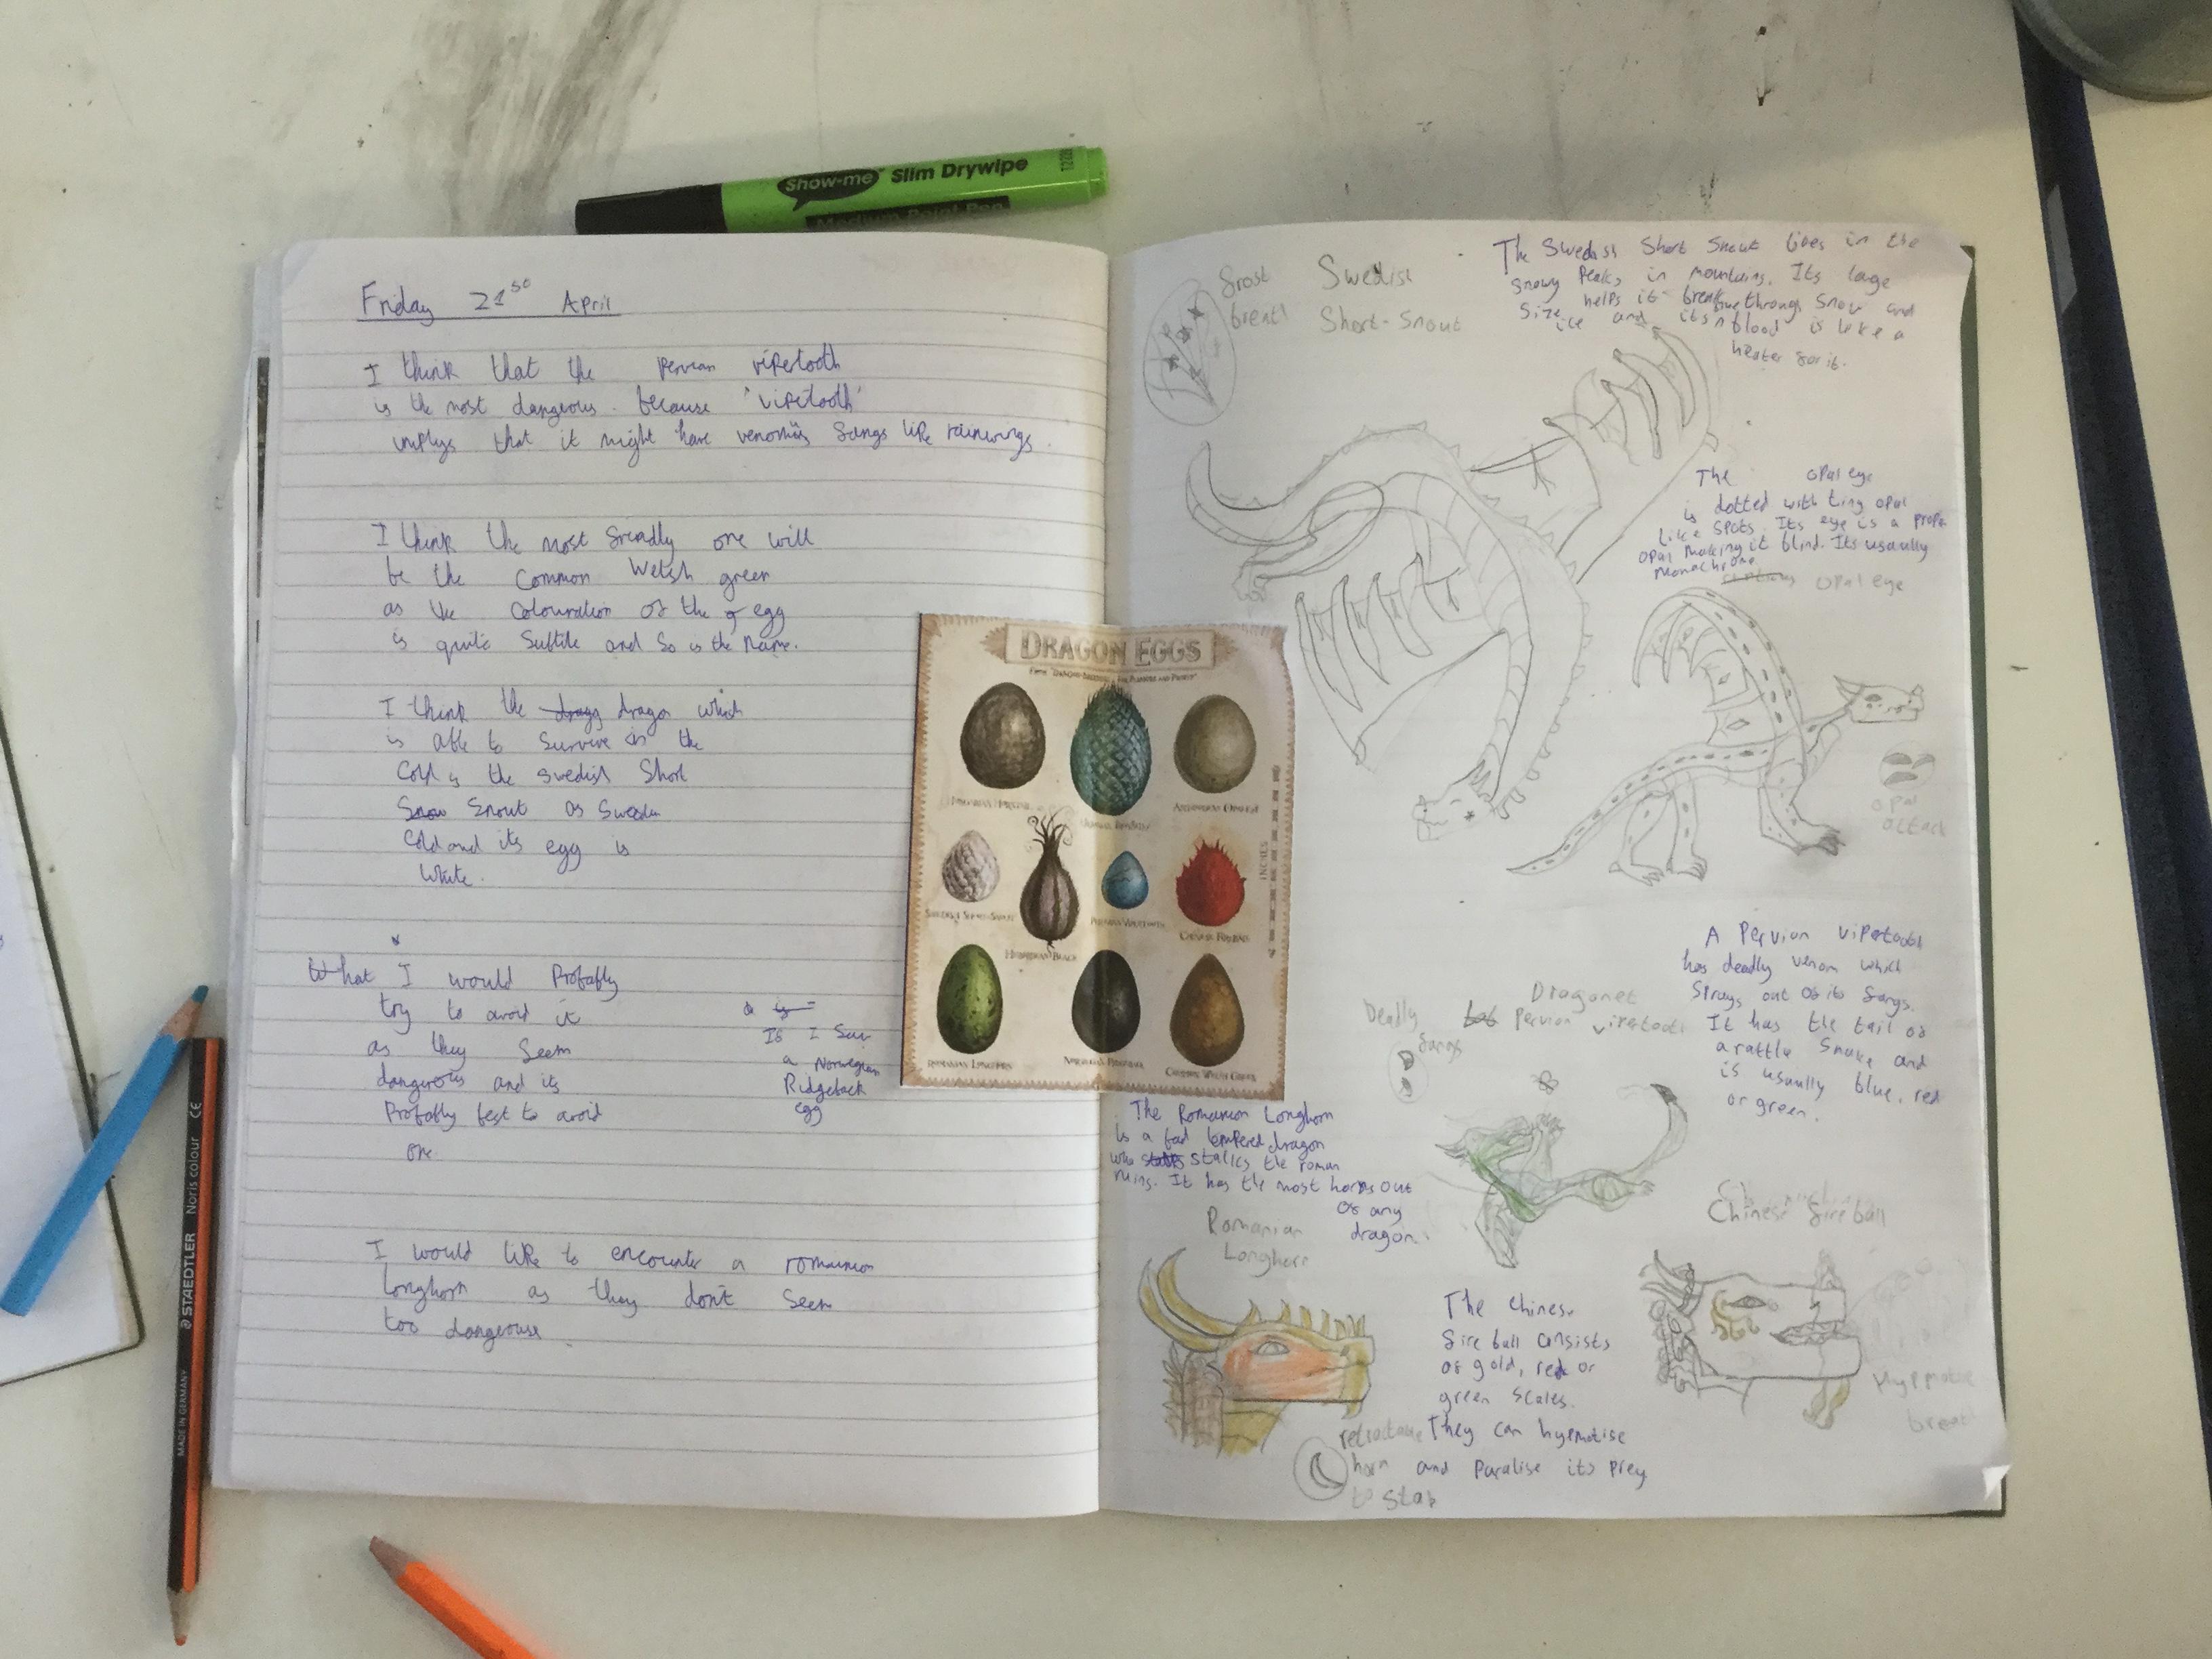 Show-me Slim Drywipe
Medium Point Pen
Friday 21st April
I think that the pervean vipetooth
is the most dangerous. because 'vipetooth'
implys that it might have venomus fangs like rainwings.
I think the most freindly one will
be the Common Welsh green
as the Colouration of the egg
is quite Subtile and So is the Name.
I think the dragg dragon which
is able to Survive in the
Cold is the swedish Short
Snow Snout as Sweden
Cold and its egg is
White.
What I would Probably
try to avoid it
as they Seem
dangerous and its
Probably best to avoid
one.
If I Saw
a Norwegian
Ridgeback
Egg
I would like to encounter a romainion
Longhorn as they don't Seem
too dangerouse.
STAEDTLER Noris colour CE
MADE IN GERMANY
DRAGON EGGS
SWEDISH SHORT-SNOUT
HEBRIDEAN BLACK
PERUVIAN VIPERTOOTH
CHINESE FIREBALL
INCHES
ROMANIAN LONGHORN
NORWEGIAN RIDGEBACK
COMMON WELSH GREEN
frost
breath
Swedish
Short-Snout
The Swedish Short Snout lives in the
Snowy Peaks in mountains. Its large
Size helps it break through Snow and
ice and its blood is like a
heater for it.
The opal eye
is dotted with tiny opal
like spots. Its eye is a prope
opal making it blind. Its usaully
Monachrome
opal eye
opal
attack
A Pervion vipertooth
has deadly venom which
Sprays out of its fangs.
It has the tail of
a rattle Snake and
is usually blue, red
or green.
Deadly
fangs
Dragonet
Pervion vipetooth
The Romanion Longhorn
is a bad tempered dragon
who stalks the roman
ruins. It has the most horns out
of any
dragon.
Romanian
Longhorn
retractable
horn
to stab
Chinese fire ball
The Chinese
fire ball consists
of gold, red or
green Scales.
They can hypmotise
and Paralise its Prey
Hypmotic
breath